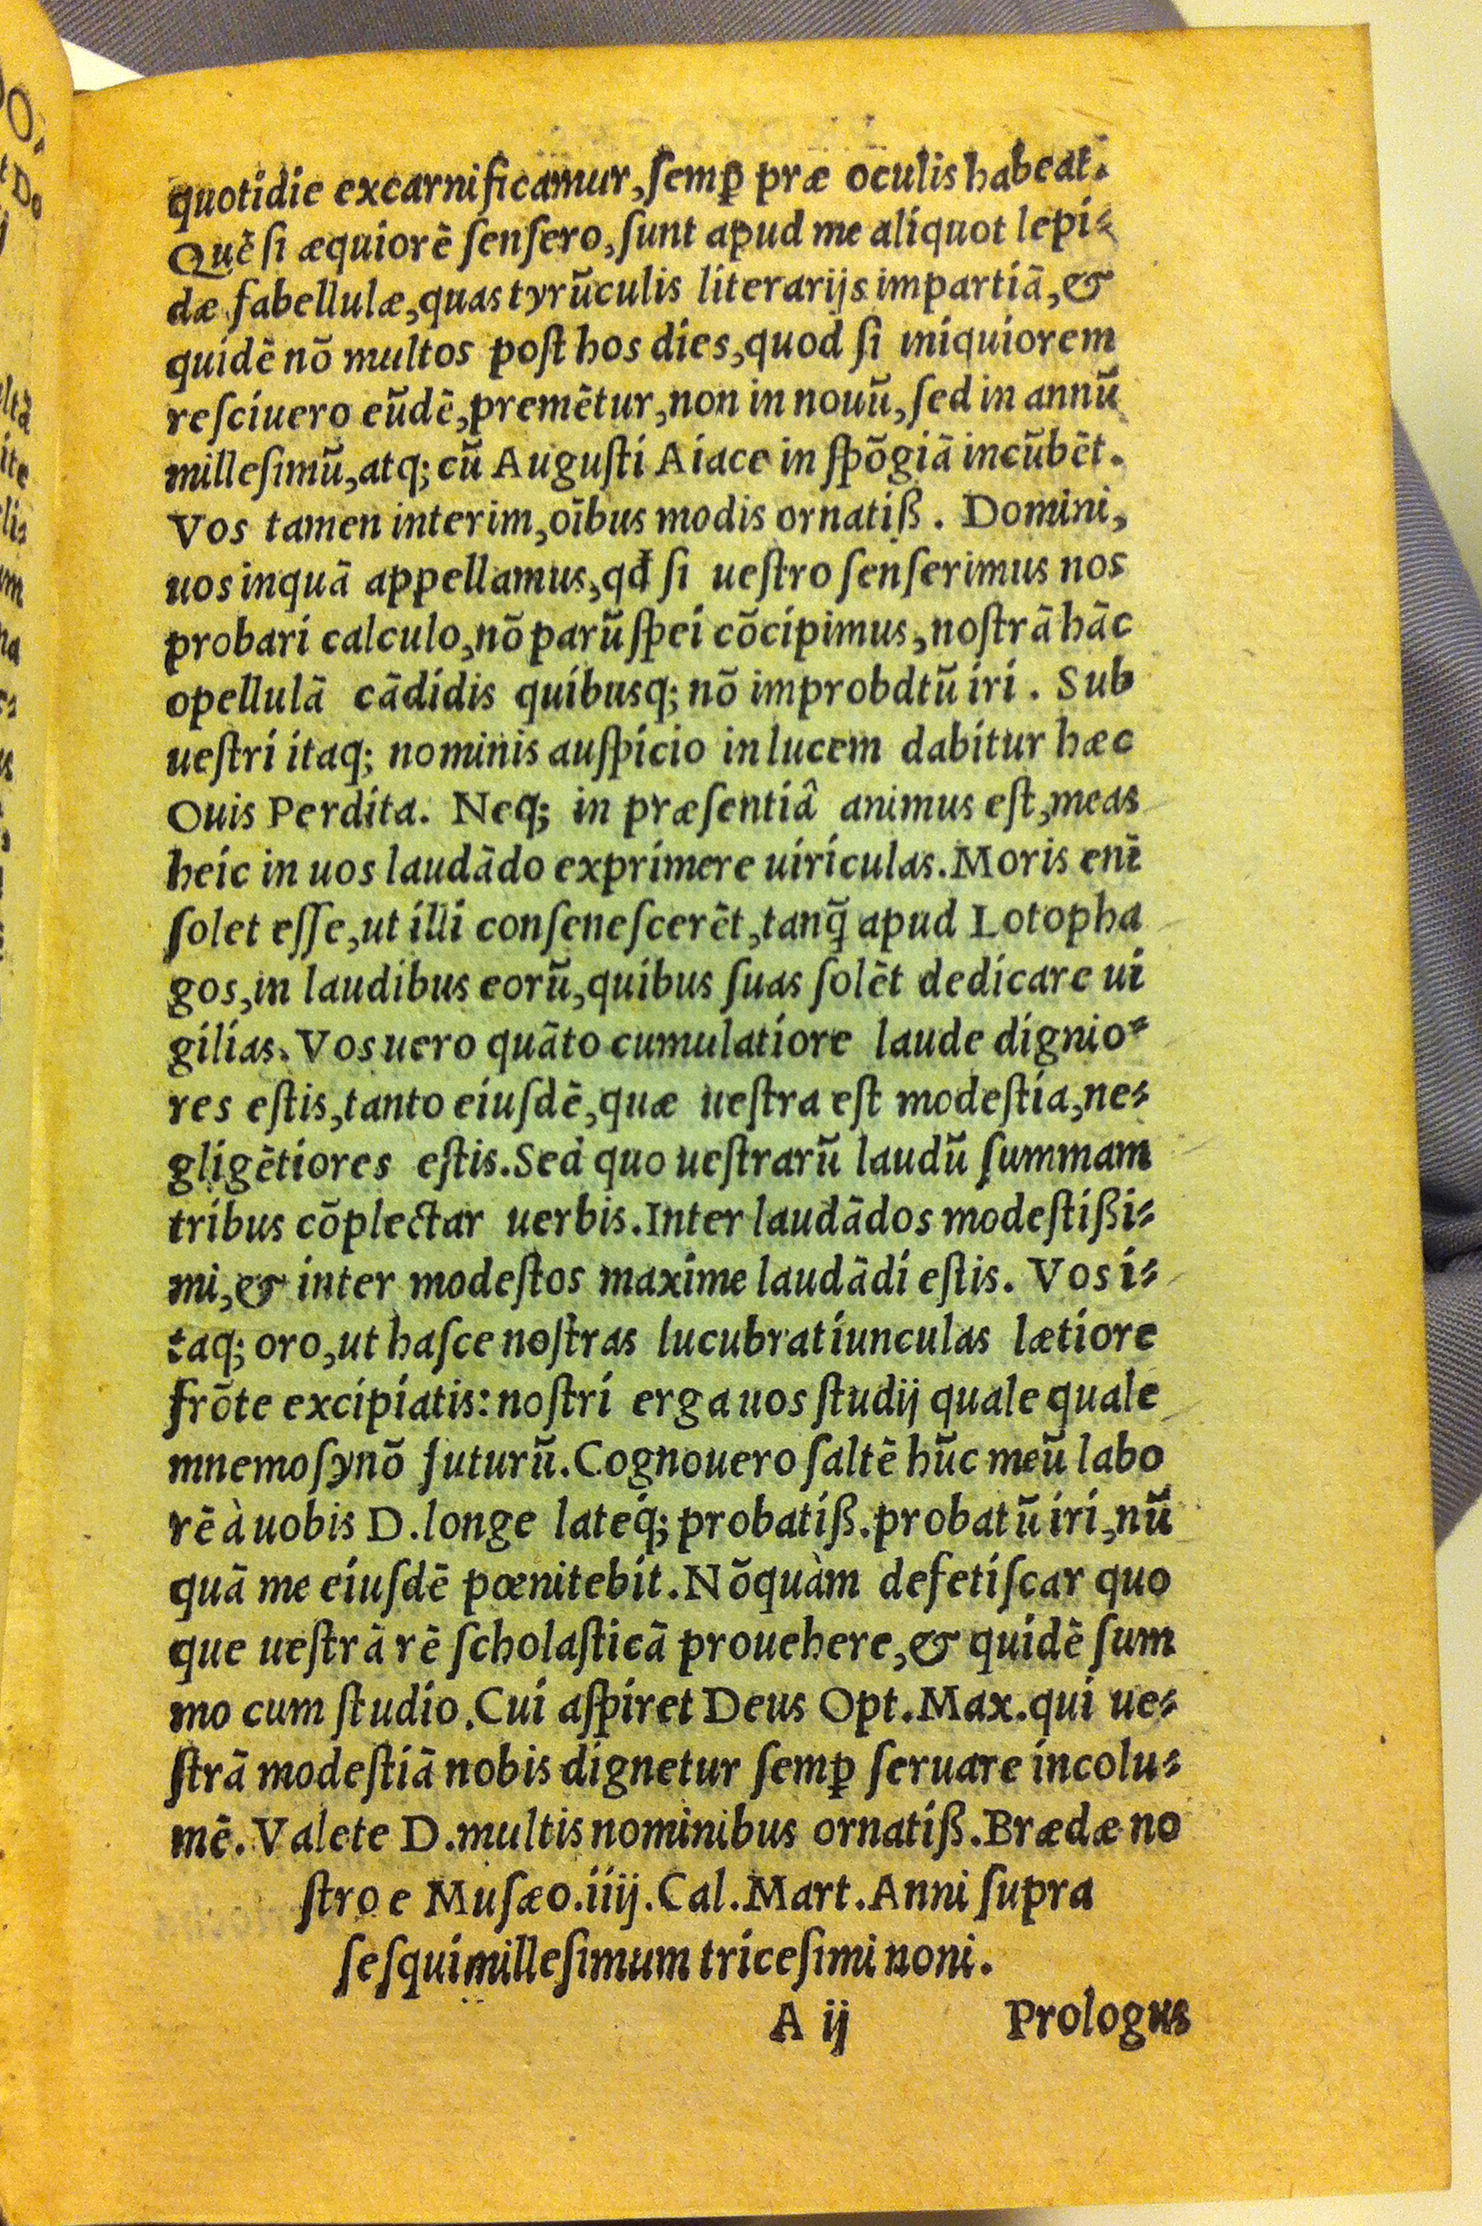 quotidie excarnificamur,ſemꝑ præ oculis habeat.
Quē ſi æquiorē ſenſero,ſunt apud me aliquot lepi⸗
dæ fabellulæ,quas tyrūculis literarijs impartiā,&
quidē nō multos poſt hos dies,quod ſi iniquiorem
reſciuero eūdē,premētur,non in nouū,ſed in annū
milleſimū,atq; cū Auguſti Aiace in ſpōgiā incūbēt.
Vos tamen interim,oībus modis ornatiß. Domini,
uos inquā appellamus,qđ ſi ueſtro ſenſerimus nos
probari calculo,nō parū ſpei cōcipimus,noſtrā hāc
opellulā cādidis quibusq; nō improbdtū iri. Sub
ueſtri itaq; nominis auſpicio in lucem dabitur hæc
Ouis Perdita. Neq; in præſentiâ animus eſt,meas
heic in uos laudādo exprimere uiriculas.Moris enī
ſolet eſſe,ut illi conſeneſcerēt,tanq̃ apud Lotopha
gos,in laudibus eorū,quibus ſuas ſolēt dedicare ui
gilias.Vos uero quāto cumulatiore laude dignio⸗
res eſtis,tanto eiuſdē,quæ ueſtra eſt modeſtia,ne⸗
gligētiores eſtis.Sed quo ueſtrarū laudū ſummam
tribus cōplectar uerbis.Inter laudādos modeſtißi⸗
mi,& inter modeſtos maxime laudādi eſtis. Vos i⸗
taq; oro,ut haſce noſtras lucubratiunculas lætiore
frōte excipiatis:noſtri erga uos ſtudij quale quale
mnemoſynō futurū.Cognouero ſaltē hūc meū labo
rē à uobis D.longe lateq́; probatiß.probatū iri,nū
quā me eiuſdē pœnitebit.Nōquàm defetiſcar quo
que ueſtrā rē ſcholaſticā prouehere,& quidē ſum
mo cum ſtudio.Cui aſpiret Deus Opt.Max.qui ue⸗
ſtrā modeſtiā nobis dignetur ſemꝑ ſeruare incolu⸗
mē.Valete D.multis nominibus ornatiß.Brædæ no
ſtro e Muſæo.iiij.Cal.Mart.Anni ſupra
ſeſquimilleſimum triceſimi noni.
A ij Prologus